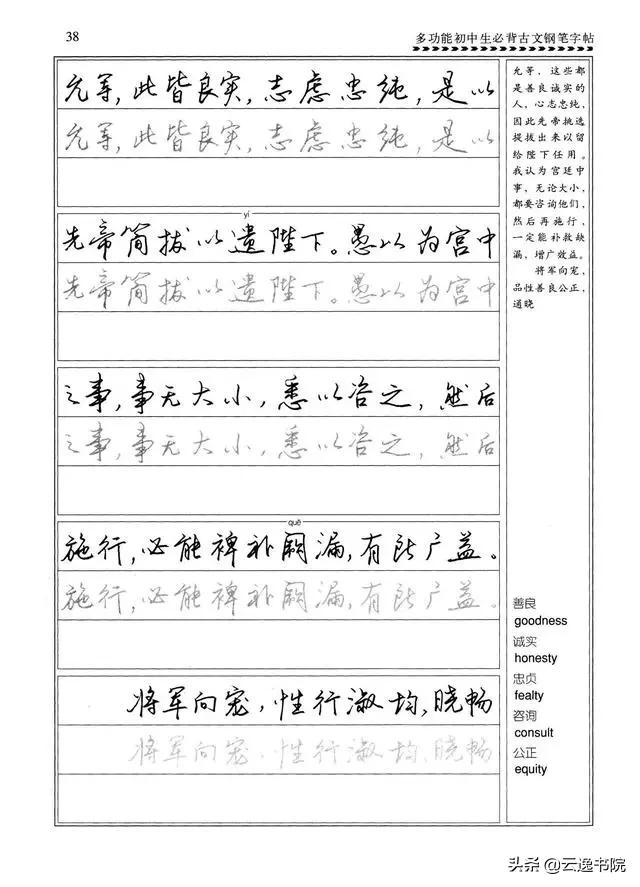 38
多功能初中生必背古文钢笔字帖
允等,此皆良实,志虑忠纯,是以
允等,此皆良实,志虑忠纯,是以
yí
先帝简拔以遗陛下。愚以为宫中
先帝简拔以遗陛下。愚以为宫中
之事,事无大小,悉以咨之,然后
之事,事无大小,悉以咨之,然后
quē
施行,必能裨补阙漏,有所广益。
施行,必能裨补阙漏,有所广益。
将军向宠,性行淑均,晓畅
将军向宠,性行淑均,晓畅
允等,这些都
是善良诚实的
人,心志忠纯,
因此先帝挑选
提拔出来以留
给陛下任用。
我认为宫廷中
事,无论大小,
都要咨询他们,
然后再施行,
一定能补救缺
漏,增广效益。
将军向宠,
品性善良公正,
通晓
善良
goodness
诚实
honesty
忠贞
fealty
咨询
consult
公正
equity
头条@云逸书院